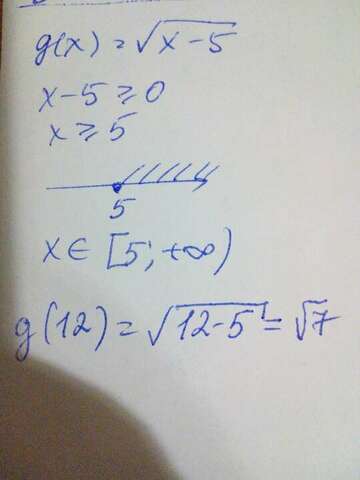 g(x) = √(x-5)
x-5 ⩾ 0
x ⩾ 5
5
x ∈ [5; +∞)
g(12) = √(12-5) = √7